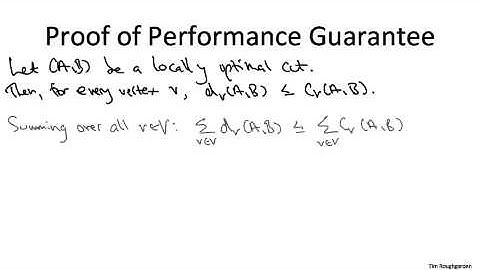 Proof of Performance Guarantee
Let (A,B) be a locally optimal cut.
Then, for every vertex v, d_v(A,B) ≤ c_v(A,B).
Summing over all v∈V: ∑_{v∈V} d_v(A,B) ≤ ∑_{v∈V} c_v(A,B)
Tim Roughgarden